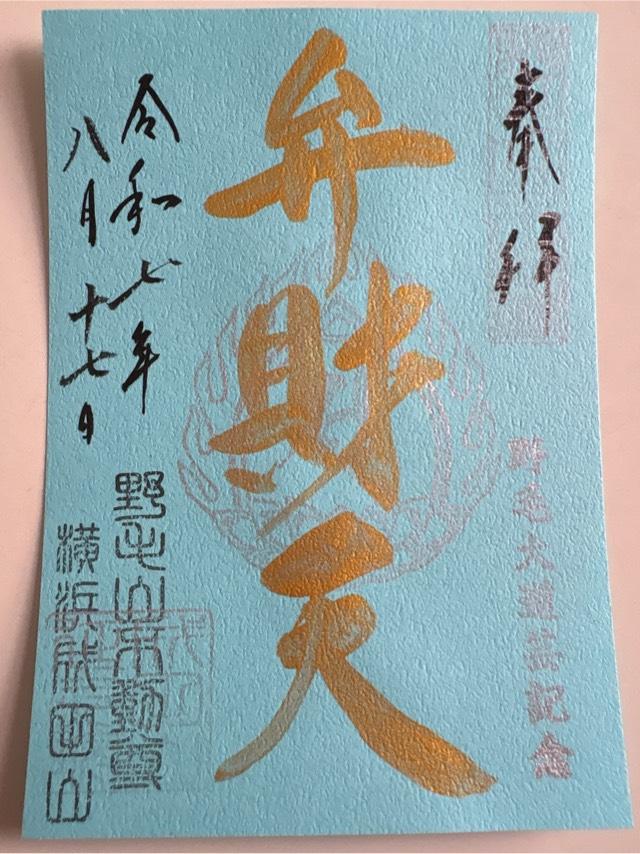 奉拝
野毛大道芸記念
弁財天
令和七年
八月十七日
野毛山不動尊
横浜成田山